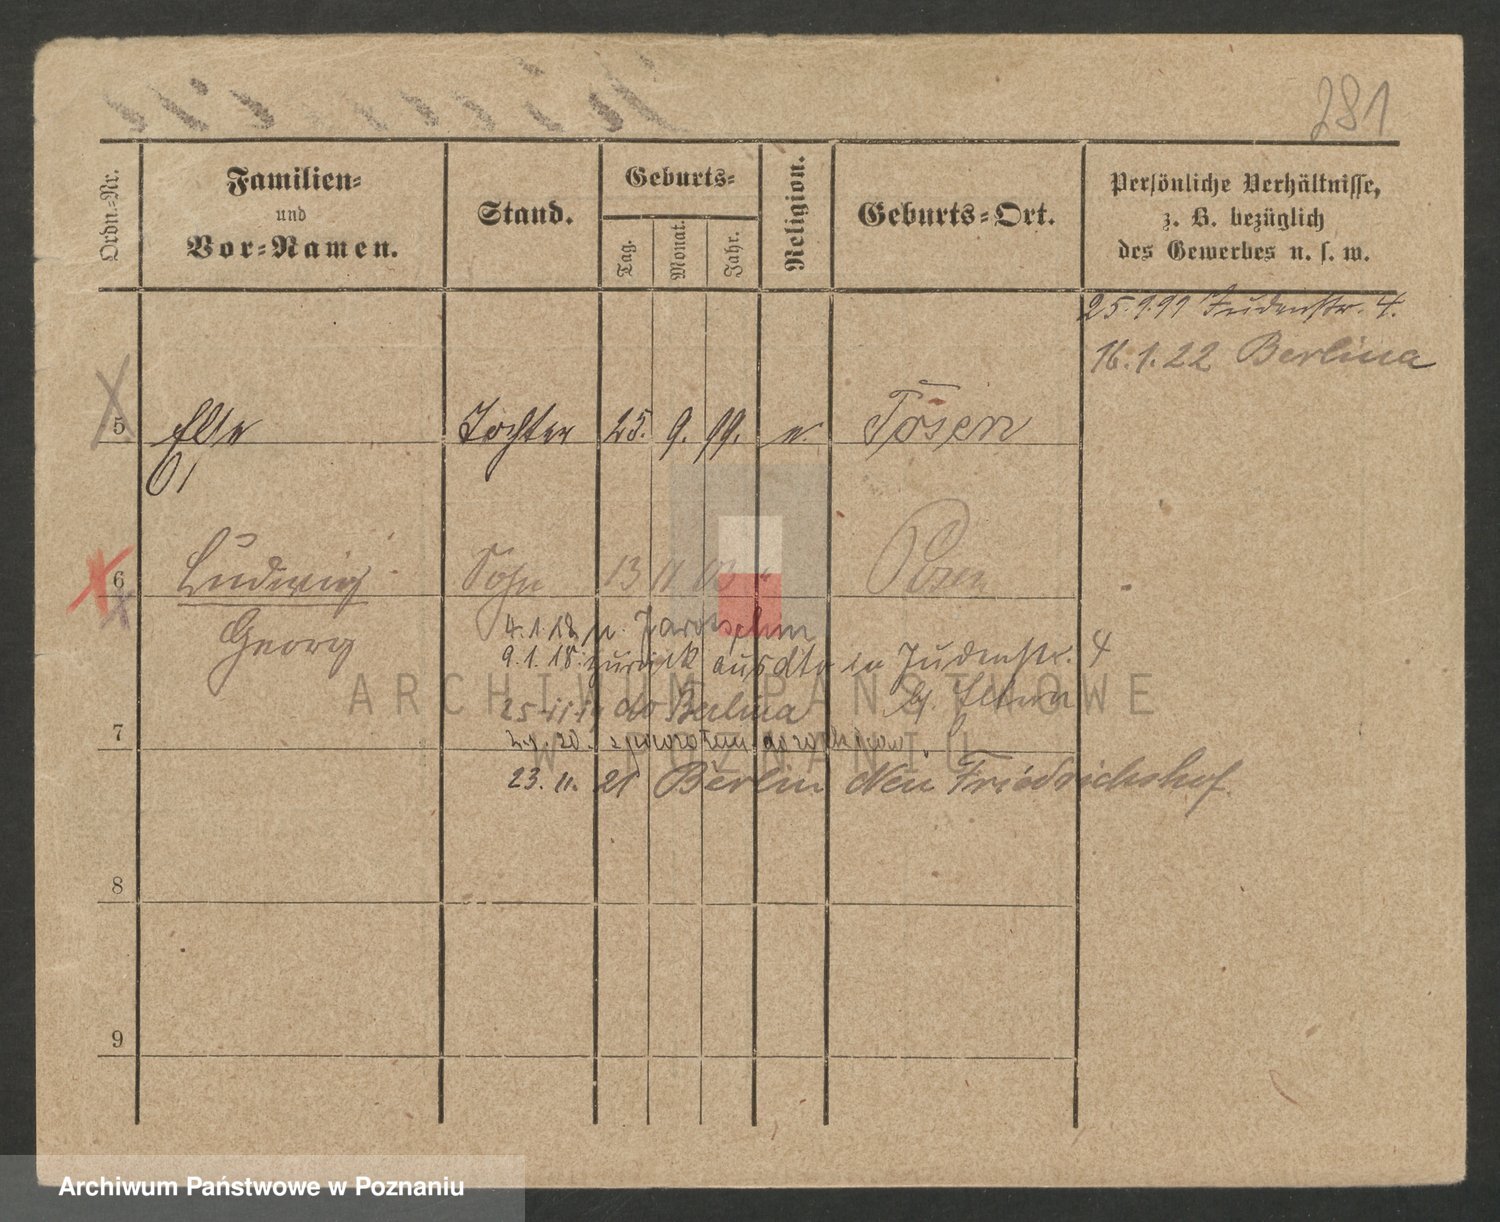 281
Ordn.-Nr.
Familien-
und
Vor-Namen.
Stand.
Geburts-
Tag.
Monat.
Jahr.
Religion.
Geburts-Ort.
Persönliche Verhältnisse,
z. B. bezüglich
des Gewerbes u. s. w.
25.9.99 Judenstr. 4.
16.1.22 Berlina
5 Else Tochter 25. 9. 99. Posen
6 Ludwig Sohn 13 11 03 Posen
Georg
4.1.18 n. Jarotschin
9.1.18 zurück aus dto in Judenstr. 4
25 11 19 do Berlina b. Eltern
7
23. 11. 21 Berlin Neu Friedrichshof
8
9
ARCHIWUM PAŃSTWOWE
W POZNANIU
Archiwum Państwowe w Poznaniu